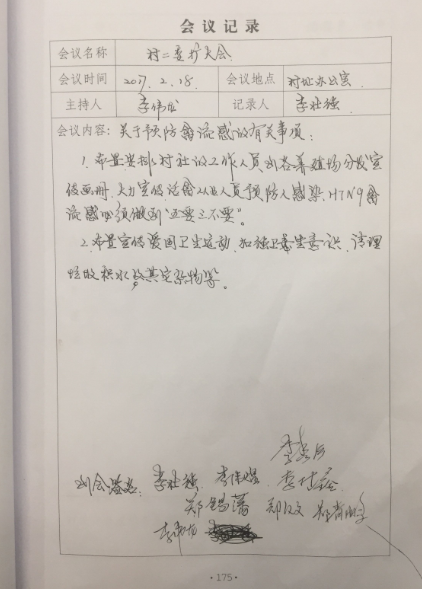 会议记录
会议名称 村二委扩大会
会议时间 2017.2.18. 会议地点 村址办公室
主持人 李伟 记录人 李壮强
会议内容: 关于预防禽流感的有关事项:
1. 布置安排村社的工作人员到各养殖场分发宣
传画册,大力宣传活禽从业人员预防人感染H7N9禽
流感必须做到“还要三不要”。
2. 布置宣传爱国卫生运动,加强卫生意识,清理
垃圾积水及其它杂物等。
李
到会签名: 李壮强 李伟 李
郑锡藩 郑汉文 郑
李
·175·